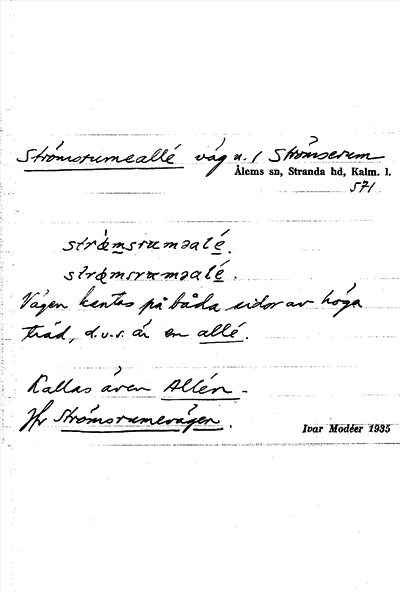 Strömsrumeallé väg n. I Strömserum
Ålems sn, Stranda hd, Kalm. l.
571
strö̀msrumǝalé.
strömsrumǝalé.
Vägen kantas på båda sidor av höga
träd, d.v.s. är en allé.
Kallas även Allén.
Jfr Strömsrumevägen.
Ivar Modéer 1935